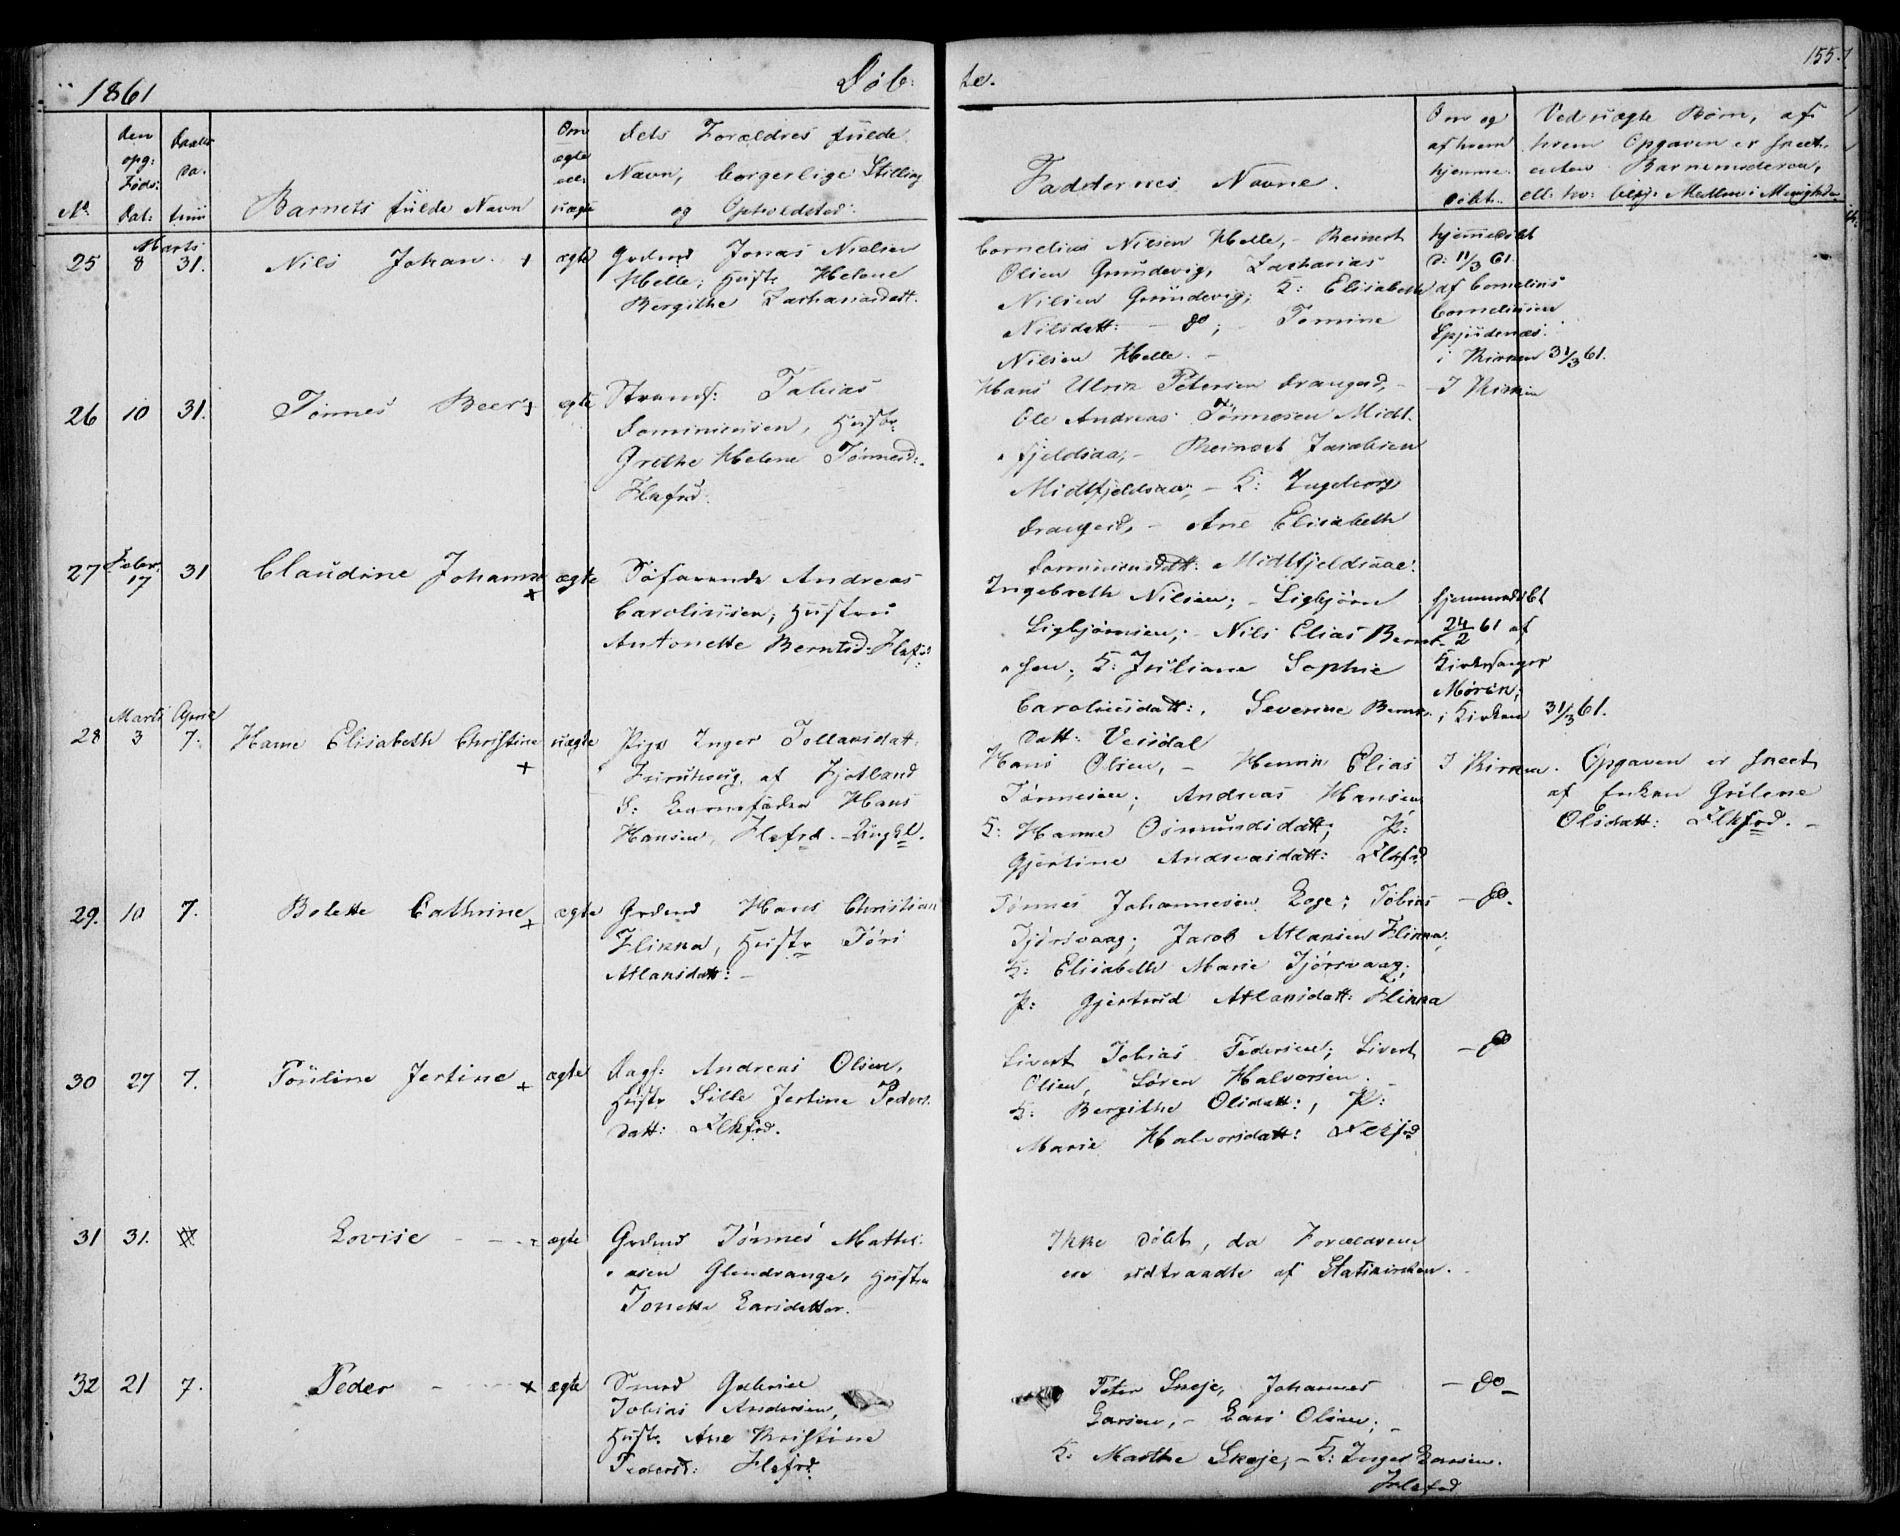 1861
Døb-
te.
155.
Den
opg:
Føds:
Dat:
Daabs
Da-
tum
No
Barnets fulde Navn
Om
ægte
ell:
uægte
Dets Forældres fulde
Navn, borgerlige Stilling
og Opholdsted.
Faddernes Navne.
Om og
af hvem
hjemme
døbt.
Ved uægte Børn, af
hvem Opgaven er skeet,
enten Barnemoderen,
ell: to
25
Marts
8
31.
Nils Johan.
ægte
Grdmd Jonas Nielsen
Helle, Hustr Helene
Bergithe Zachariasdatt.
Cornelius Nilsen Helle, - Reinert
Olsen Grundevig, Zacharias
Nilsen Grundevig; K: Elisabeth
Nilsdatt: - do; - Tomine
Nilsen Helle. -
hjemmedøbt
d: 11/3 61.
af Cornelius
Cornelius
i Kirken 31/3 61.
26
10
31.
Tønnes Beer
ægte
Strands: Tobias
Danielsen, Hustr
Grethe Helene Tønnesd:
Flekfrd.
Hans Ulrik Petersen Drangeid, -
Ole Andreas Tønnesen Midt-
fjeldsaa, - Reinert Jacobsen
Midtfjeldsaa; - K: Ingeborg
Drangeid, - Ane Elisabeth
Midtfjeldsaae.
- I Kirken
27
Febr.
17
31
Claudine Johanne
ægte
Søfarende Andreas
Caroliussen, Hustru
Antonette Berntsd: Flefd:
Ingebreth Nilsen; - Sigbjørn
Sigbjørnsen; - Nils Elias Bernt-
sen; K: Juliane Sophie
Caroliusdatt:, Severine Bernts-
datt: Veisdal
hjemmedøbt
24/2 61 af
Kirkesanger
Mørch;
i Kirken 31/3 61.
28
Marts
3
April
7.
Hanne Elisabeth Christine
uægte
Pige Inger Tollaksdatt.
af Fjotland
S: Barnefader Hans
Hansen, Flefrd. Ungkl.
Hans Olsen, - Henrik Elias
Tønnesen; Andreas Hansen
K: Hanne Osmundsdatt; P:
Gjertine Andreasdatt: Flkfrd
I Kirken.
Opgaven er skeet
af Enken Gulene
Olsdatt: Flkfrd. -
29.
10
7.
Bolette Cathrine
ægte
Grdmd Hans Christian
Flikka, Hustr Tøri
Atlaksdatt: -
Tønnes Johannesen Loge; Tobias
Tjørsvaag; Jacob Atlaksen Flikka;
K: Elisabeth Marie Tjørsvaag;
P: Gjertrud Atlaksdatt: Flikka
- do.
30
27
7.
Pouline Jertine
ægte
Dags: Andreas Olsen,
Hustr Sille Jertine Peders-
datt: Flkfrd.
Sivert Tobias Pedersen; Sivert
Olsen, Søren Halvorsen. -
K: Bergithe Olsdatt:, P:
Marie Halvorsdatt: Flekfd
- do
31
31.
Lovise - - -
ægte
Grdmd Tønnes Mathi-
asen Glendrange, Hustru
Tonette Larsdatter.
Ikke døbt, da Forældrene
ere udtraadte af Statskirken. -
32
21
7.
Peder -
ægte
Smed Gabriel
Tobias Andersen,
Hustr. Ane Kristine
Pedersd: Flefrd.
Peter Skeje, Johannes
Larsen, - Lars Olsen; -
K: Marthe Skeje, - K: Inger Larsen.
Flefrd
- do -